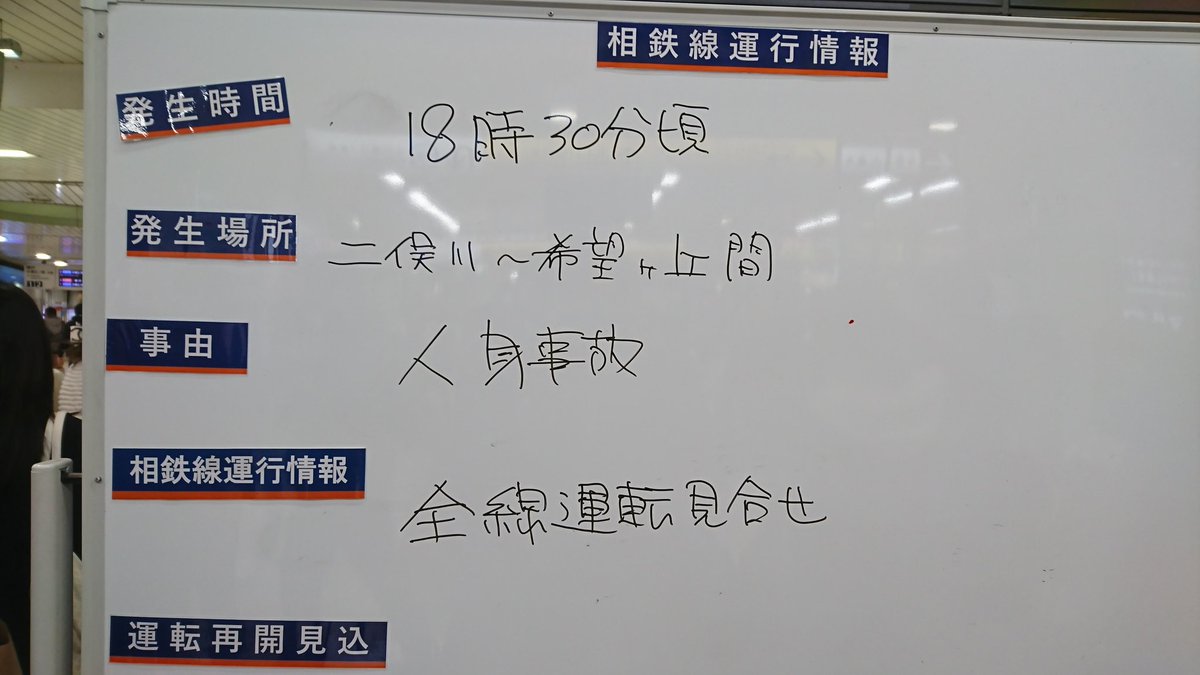 相鉄線運行情報
発生時間
18時30分頃
発生場所
二俣川～希望ヶ丘間
事由
人身事故
相鉄線運行情報
全線運転見合せ
運転再開見込